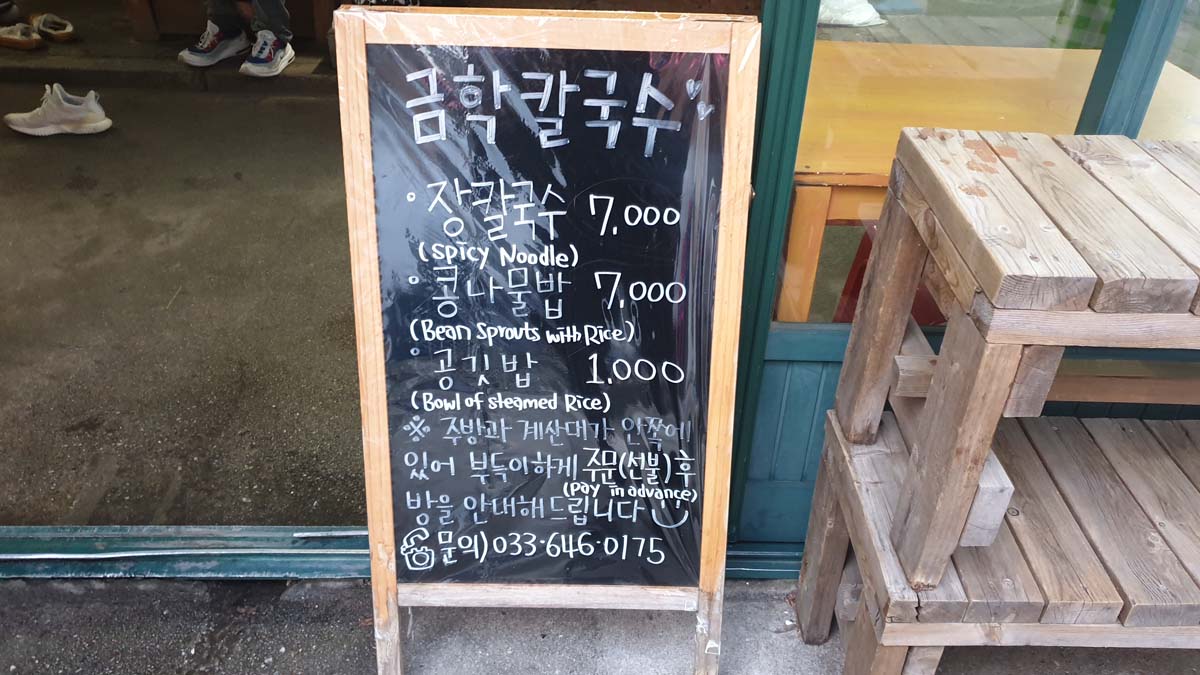 금학칼국수
장칼국수 7,000
(Spicy Noodle)
콩나물밥 7,000
(Bean Sprouts with Rice)
공깃밥 1,000
(Bowl of steamed Rice)
※ 주방과 계산대가 안쪽에
있어 부득이하게 주문(선불)후
(Pay in advance)
방을 안내해드립니다
문의) 033·646·0175